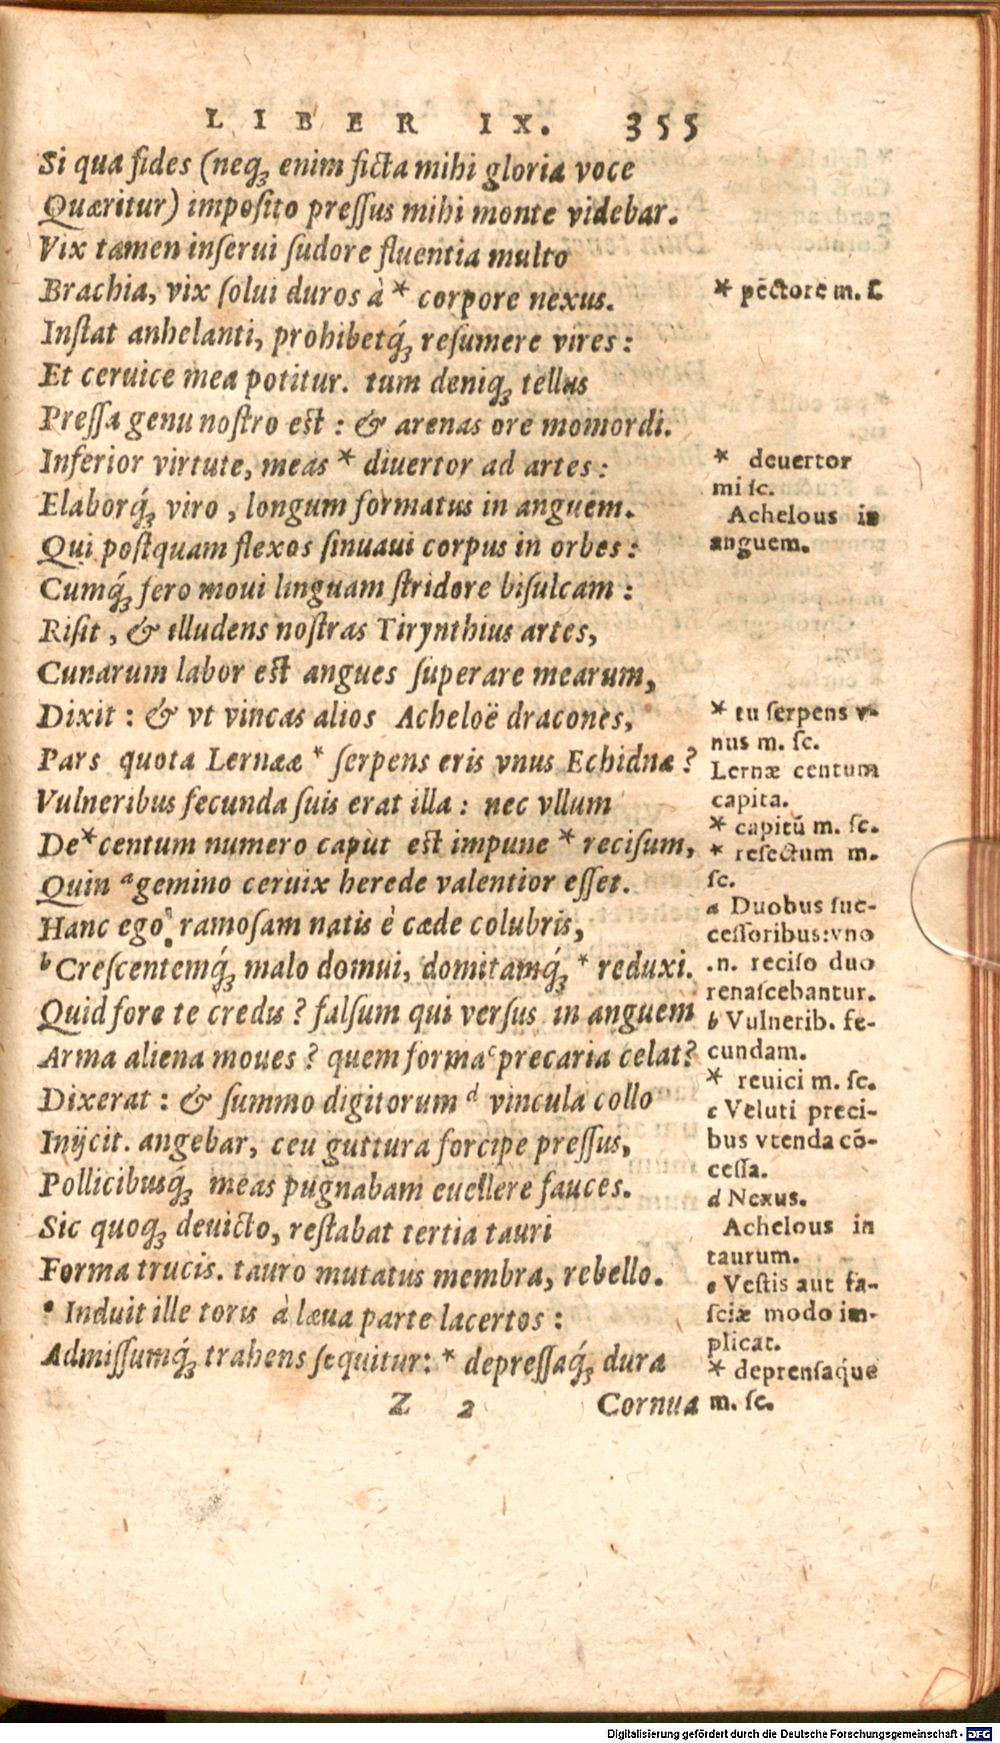 LIBER IX. 355
Si qua fides (neqꝫ enim ficta mihi gloria voce
Quæritur) imposito preſſus mihi monte videbar.
Vix tamen inſerui ſudore fluentia multo
Brachia, vix ſolui duros à * corpore nexus.
Inſtat anhelanti, prohibetq́ꝫ reſumere vires:
Et ceruice mea potitur. tum deniqꝫ tellus
Preſſa genu noſtro eſt: & arenas ore momordi.
Inferior virtute, meas * diuertor ad artes:
Elaborq́ꝫ viro, longum formatus in anguem.
Qui poſtquam flexos ſinuaui corpus in orbes:
Cumq́ꝫ fero moui linguam ſtridore biſulcam:
Riſit, & illudens noſtras Tirynthius artes,
Cunarum labor eſt angues ſuperare mearum,
Dixit: & vt vincas alios Acheloë dracones,
Pars quota Lernææ * ſerpens eris vnus Echidnæ?
Vulneribus fecunda ſuis erat illa: nec vllum
De * centum numero caput eſt impune * reciſum,
Quin a gemino ceruix herede valentior eſſet.
Hanc ego ramoſam natis è cæde colubris,
b Creſcentemq́ꝫ malo domui, domitamq́ꝫ * reduxi.
Quid fore te credis? falſum qui verſus in anguem
Arma aliena moues? quem forma c precaria celat?
Dixerat: & ſummo digitorum d vincula collo
Inijcit. angebar, ceu guttura forcipe preſſus,
Pollicibusq́ꝫ meas pugnabam euellere fauces.
Sic quoqꝫ deuicto, reſtabat tertia tauri
Forma trucis. tauro mutatus membra, rebello.
e Induit ille toris à læua parte lacertos:
Admiſſumq́ꝫ trahens ſequitur: * depreſſaq́ꝫ dura
Z 2 Cornua
* pēctore m. ſ.
* deuertor
mi ſc.
Achelous in
anguem.
* tu ſerpens v-
nus m. ſc.
Lernæ centum
capita.
* capitū m. ſc.
* reſectum m.
ſc.
a Duobus ſuc-
ceſſoribus: vno
.n. reciſo duo
renaſcebantur.
b Vulnerib. fe-
cundam.
* reuici m. ſc.
c Veluti preci-
bus vtenda cō-
ceſſa.
d Nexus.
Achelous in
taurum.
e Veſtis aut fa-
ſciæ modo im-
plicat.
* deprenſaque
m. ſc.
Digitalisierung gefördert durch die Deutsche Forschungsgemeinschaft - DFG